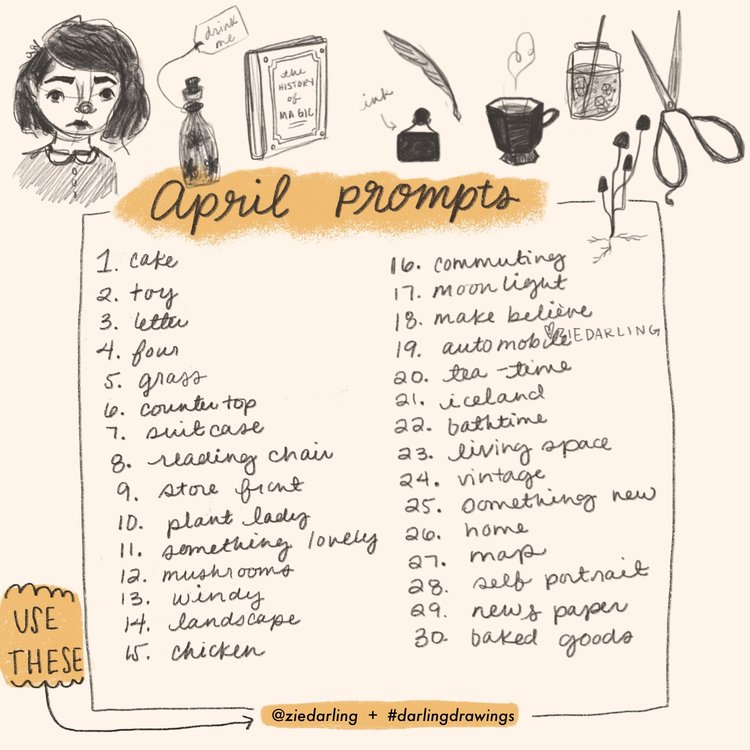 drink
me
the
HISTORY
of
MAGIC
ink
April prompts
1. cake
2. toy
3. letter
4. four
5. grass
6. counter top
7. suitcase
8. reading chair
9. store front
10. plant lady
11. something lovely
12. mushrooms
13. windy
14. landscape
15. chicken
16. commuting
17. moonlight
18. make believe
19. automobile
ZIEDARLING
20. tea-time
21. iceland
22. bathtime
23. living space
24. vintage
25. something new
26. home
27. map
28. self portrait
29. news paper
30. baked goods
USE
THESE
@ziedarling + #darlingdrawings